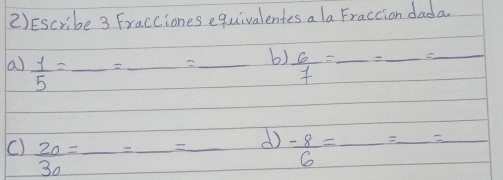 2) Escribe 3 Fracciones equivalentes a la Fraccion dada.
a) 1/5 = ___ = ___ = ___ b) 6/7 = ___ = ___ = ___
c) 20/30 = ___ = ___ = ___ d) -8/6 = ___ = ___ = ___